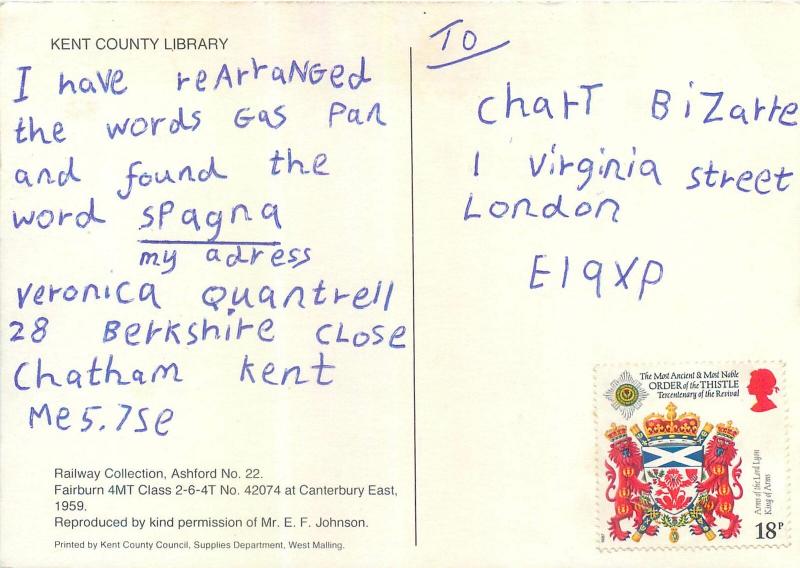 KENT COUNTY LIBRARY
I have reArraNGed
the words Gas Pan
and found the
word sPagna
my adress
veronica Quantrell
28 Berkshire CLose
Chatham Kent
Me5.7se
Railway Collection, Ashford No. 22.
Fairburn 4MT Class 2-6-4T No. 42074 at Canterbury East,
1959.
Reproduced by kind permission of Mr. E. F. Johnson.
Printed by Kent County Council, Supplies Department, West Malling.
To
Chart Bizarre
1 Virginia street
London
E19XP
The Most Ancient & Most Noble
ORDER of the THISTLE
Tercentenary of the Revival
Arms of the Lord Lyon
King of Arms
18P